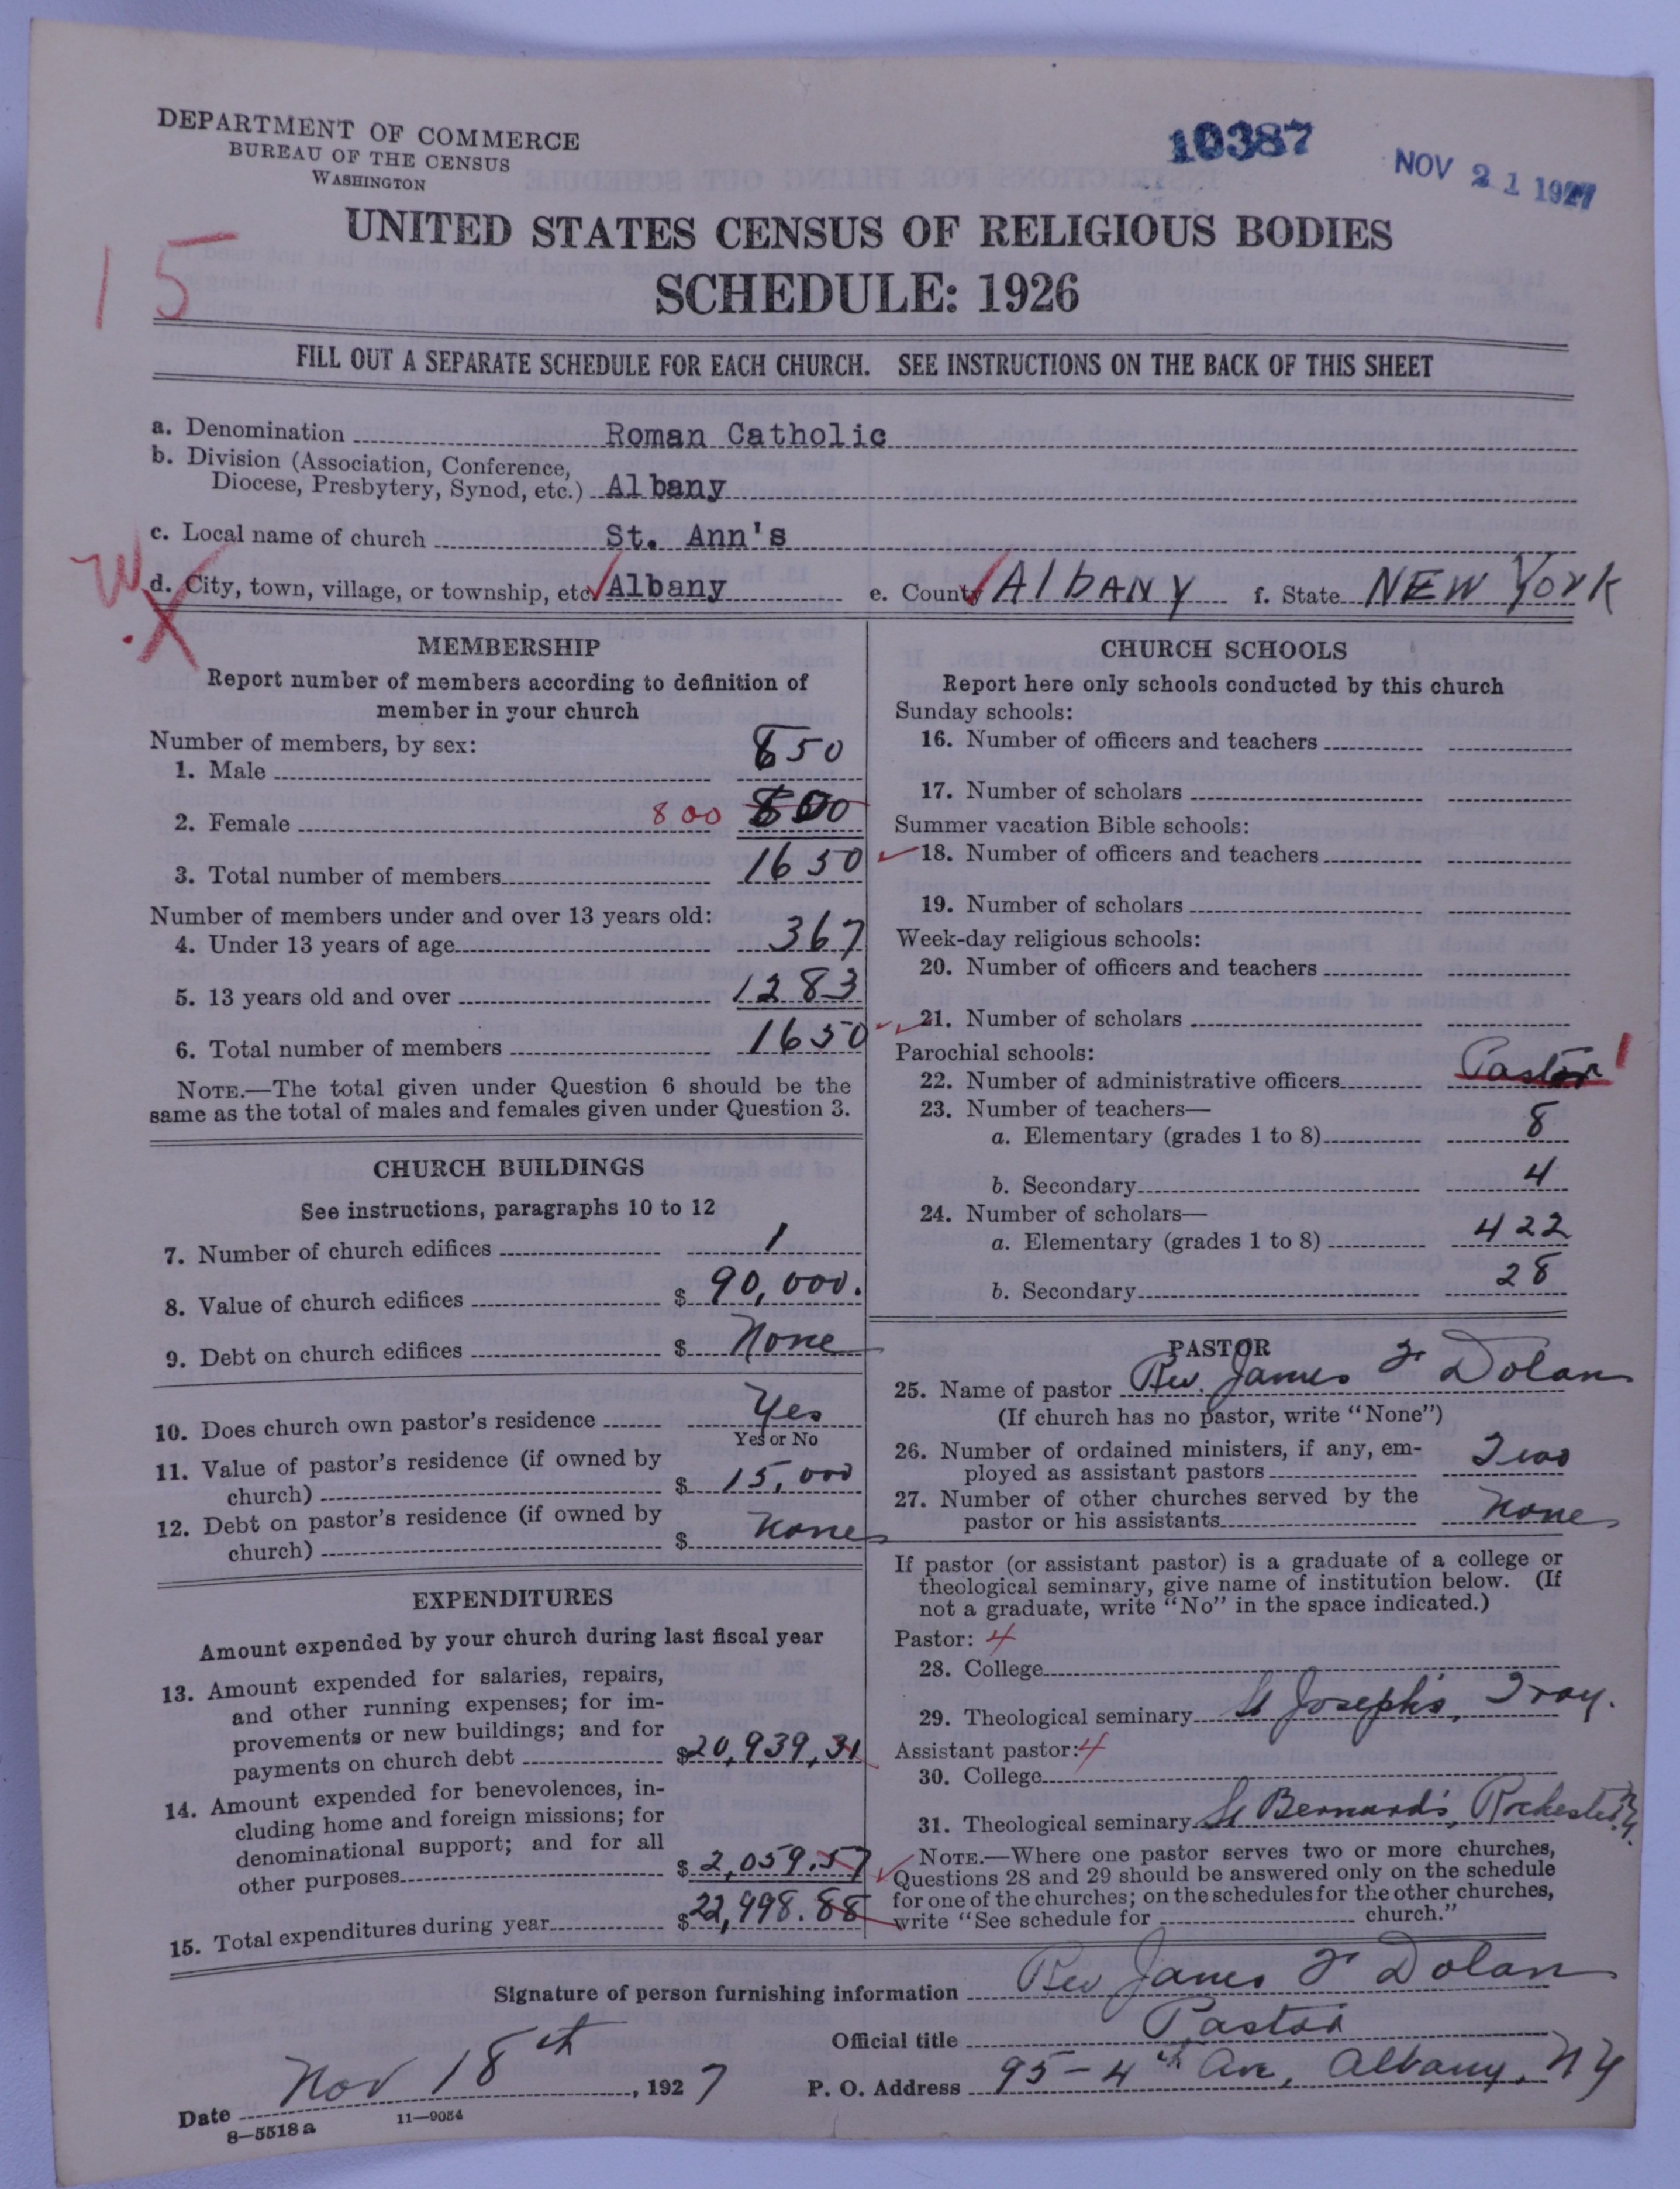 DEPARTMENT OF COMMERCE
BUREAU OF THE CENSUS
WASHINGTON
10387
NOV 21 1927
UNITED STATES CENSUS OF RELIGIOUS BODIES
SCHEDULE: 1926
15
FILL OUT A SEPARATE SCHEDULE FOR EACH CHURCH. SEE INSTRUCTIONS ON THE BACK OF THIS SHEET
a. Denomination Roman Catholic
b. Division (Association, Conference,
Diocese, Presbytery, Synod, etc.) Albany
c. Local name of church St. Ann's
W
d. City, town, village, or township, etc. Albany e. County ALBANY f. State NEW YORK
X
MEMBERSHIP
Report number of members according to definition of
member in your church
Number of members, by sex:
1. Male 850
2. Female 800 800
3. Total number of members 1650
Number of members under and over 13 years old:
4. Under 13 years of age 367
5. 13 years old and over 1283
6. Total number of members 1650
NOTE.—The total given under Question 6 should be the
same as the total of males and females given under Question 3.
CHURCH BUILDINGS
See instructions, paragraphs 10 to 12
7. Number of church edifices 1
8. Value of church edifices $ 90,000.
9. Debt on church edifices $ None
10. Does church own pastor's residence Yes
Yes or No
11. Value of pastor's residence (if owned by
church) $ 15,000
12. Debt on pastor's residence (if owned by
church) $ None
EXPENDITURES
Amount expended by your church during last fiscal year
13. Amount expended for salaries, repairs,
and other running expenses; for im-
provements or new buildings; and for
payments on church debt $20,939,31
14. Amount expended for benevolences, in-
cluding home and foreign missions; for
denominational support; and for all
other purposes $ 2,059.57
15. Total expenditures during year $22,998.88
CHURCH SCHOOLS
Report here only schools conducted by this church
Sunday schools:
16. Number of officers and teachers
17. Number of scholars
Summer vacation Bible schools:
18. Number of officers and teachers
19. Number of scholars
Week-day religious schools:
20. Number of officers and teachers
21. Number of scholars
Parochial schools:
22. Number of administrative officers Pastor 1
23. Number of teachers—
a. Elementary (grades 1 to 8) 8
b. Secondary 4
24. Number of scholars—
a. Elementary (grades 1 to 8) 422
b. Secondary 28
PASTOR
25. Name of pastor Rev. James F Dolan
(If church has no pastor, write "None")
26. Number of ordained ministers, if any, em-
ployed as assistant pastors Two
27. Number of other churches served by the
pastor or his assistants None
If pastor (or assistant pastor) is a graduate of a college or
theological seminary, give name of institution below. (If
not a graduate, write "No" in the space indicated.)
Pastor: 4
28. College
29. Theological seminary St Joseph's, Troy.
Assistant pastor: 4
30. College
31. Theological seminary St Bernard's, Rochester N.Y.
NOTE.—Where one pastor serves two or more churches,
Questions 28 and 29 should be answered only on the schedule
for one of the churches; on the schedules for the other churches,
write "See schedule for church."
Signature of person furnishing information Rev James F Dolan
Official title Pastor
Date Nov 18th, 1927 P. O. Address 95-4th Ave, Albany, NY
8—5518a 11—9054